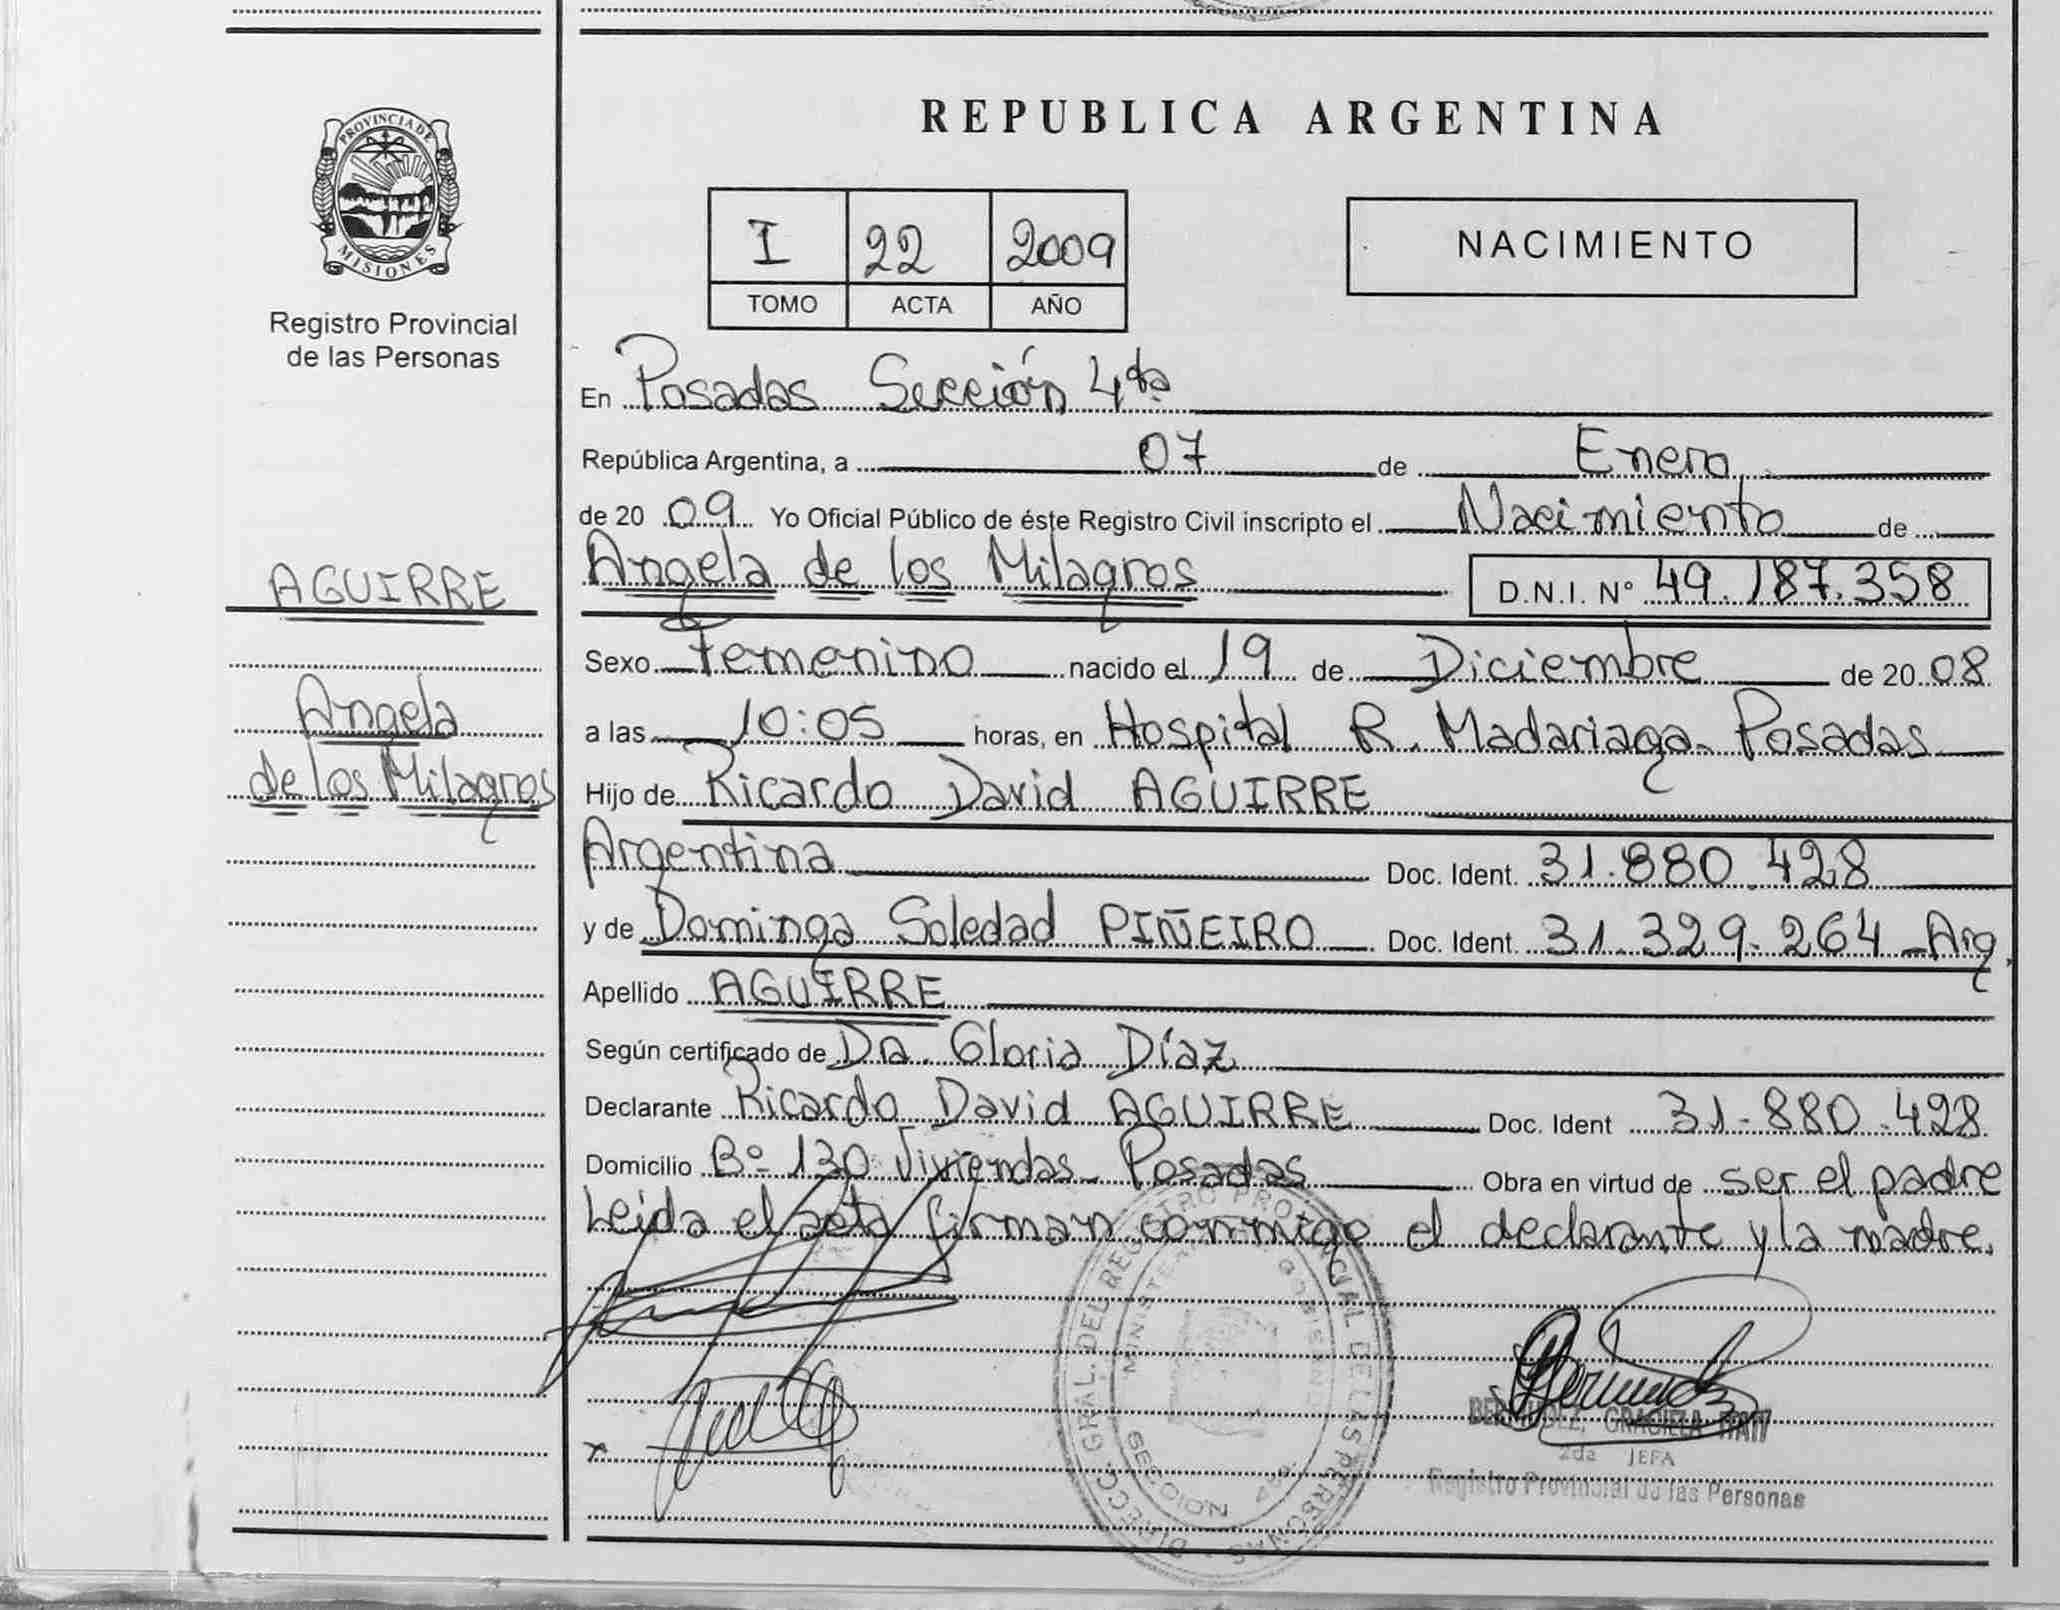 PROVINCIA DE
MISIONES
Registro Provincial
de las Personas
AGUIRRE
Angela
de los Milagros
REPUBLICA ARGENTINA
I 22 2009
TOMO ACTA AÑO
NACIMIENTO
En Posadas Sección 4ta
República Argentina, a 07 de Enero
de 20 09 Yo Oficial Público de éste Registro Civil inscripto el Nacimiento de
Angela de los Milagros D.N.I. Nº 49.187.358
Sexo Femenino nacido el 19 de Diciembre de 20 08
a las 10:05 horas, en Hospital R. Madariaga - Posadas
Hijo de Ricardo David AGUIRRE
Argentina Doc. Ident. 31.880.428
y de Dominga Soledad PIÑEIRO Doc. Ident. 31.329.264 - Arg.
Apellido AGUIRRE
Según certificado de Dra. Gloria Díaz
Declarante Ricardo David AGUIRRE Doc. Ident 31.880.428
Domicilio Bº 130 Viviendas - Posadas Obra en virtud de ser el padre
Leida el acta firman conmigo el declarante y la madre.
DIRECC. GRAL. DEL REGISTRO PROVINCIAL DE LAS PERSONAS
SECCION 4ta
BERMUDEZ, GRACIELA ITATI
2da JEFA
Registro Provincial de las Personas